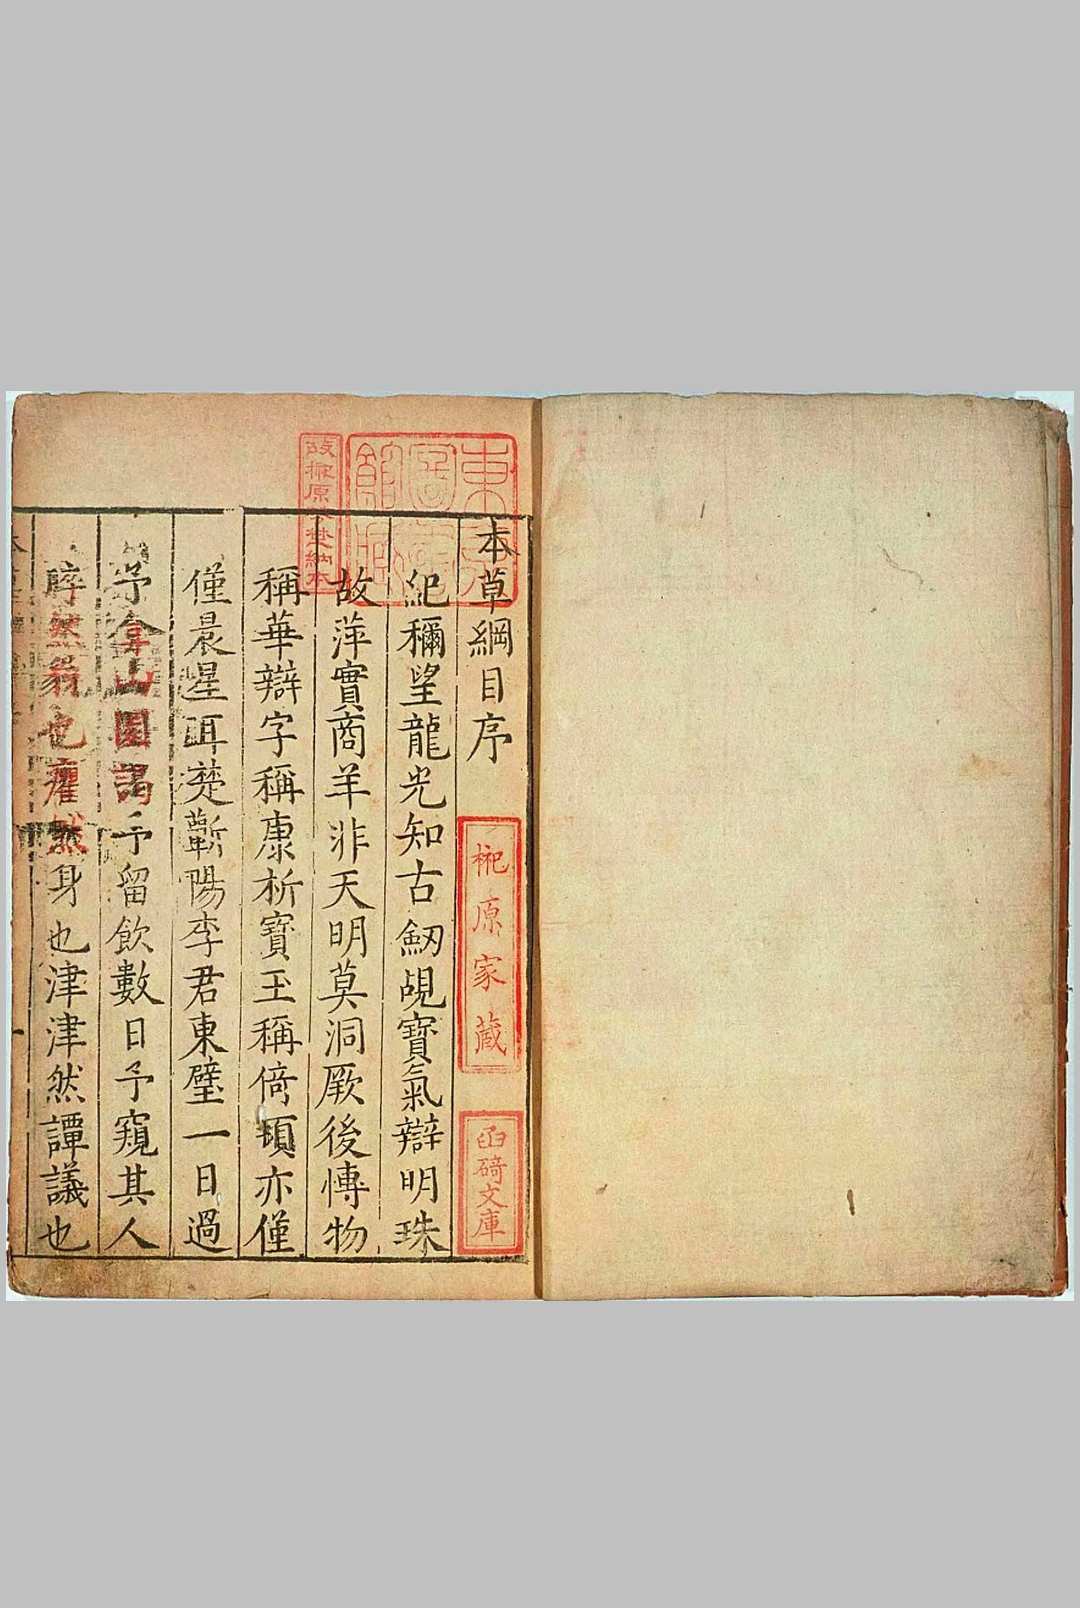 東京圖書館藏
故榊原芳埜納本
本草綱目序
榊原家藏
函碕文庫
紀穪望龍光知古劒覘寶氣辯明珠
故萍實商羊非天明莫洞厥後博物
稱華辯字稱康析寶玉稱倚頓亦僅
僅晨星耳楚蘄陽李君東璧一日過
予弇山園謁予留飲數日予窺其人
睟然貌也癯然身也津津然譚議也